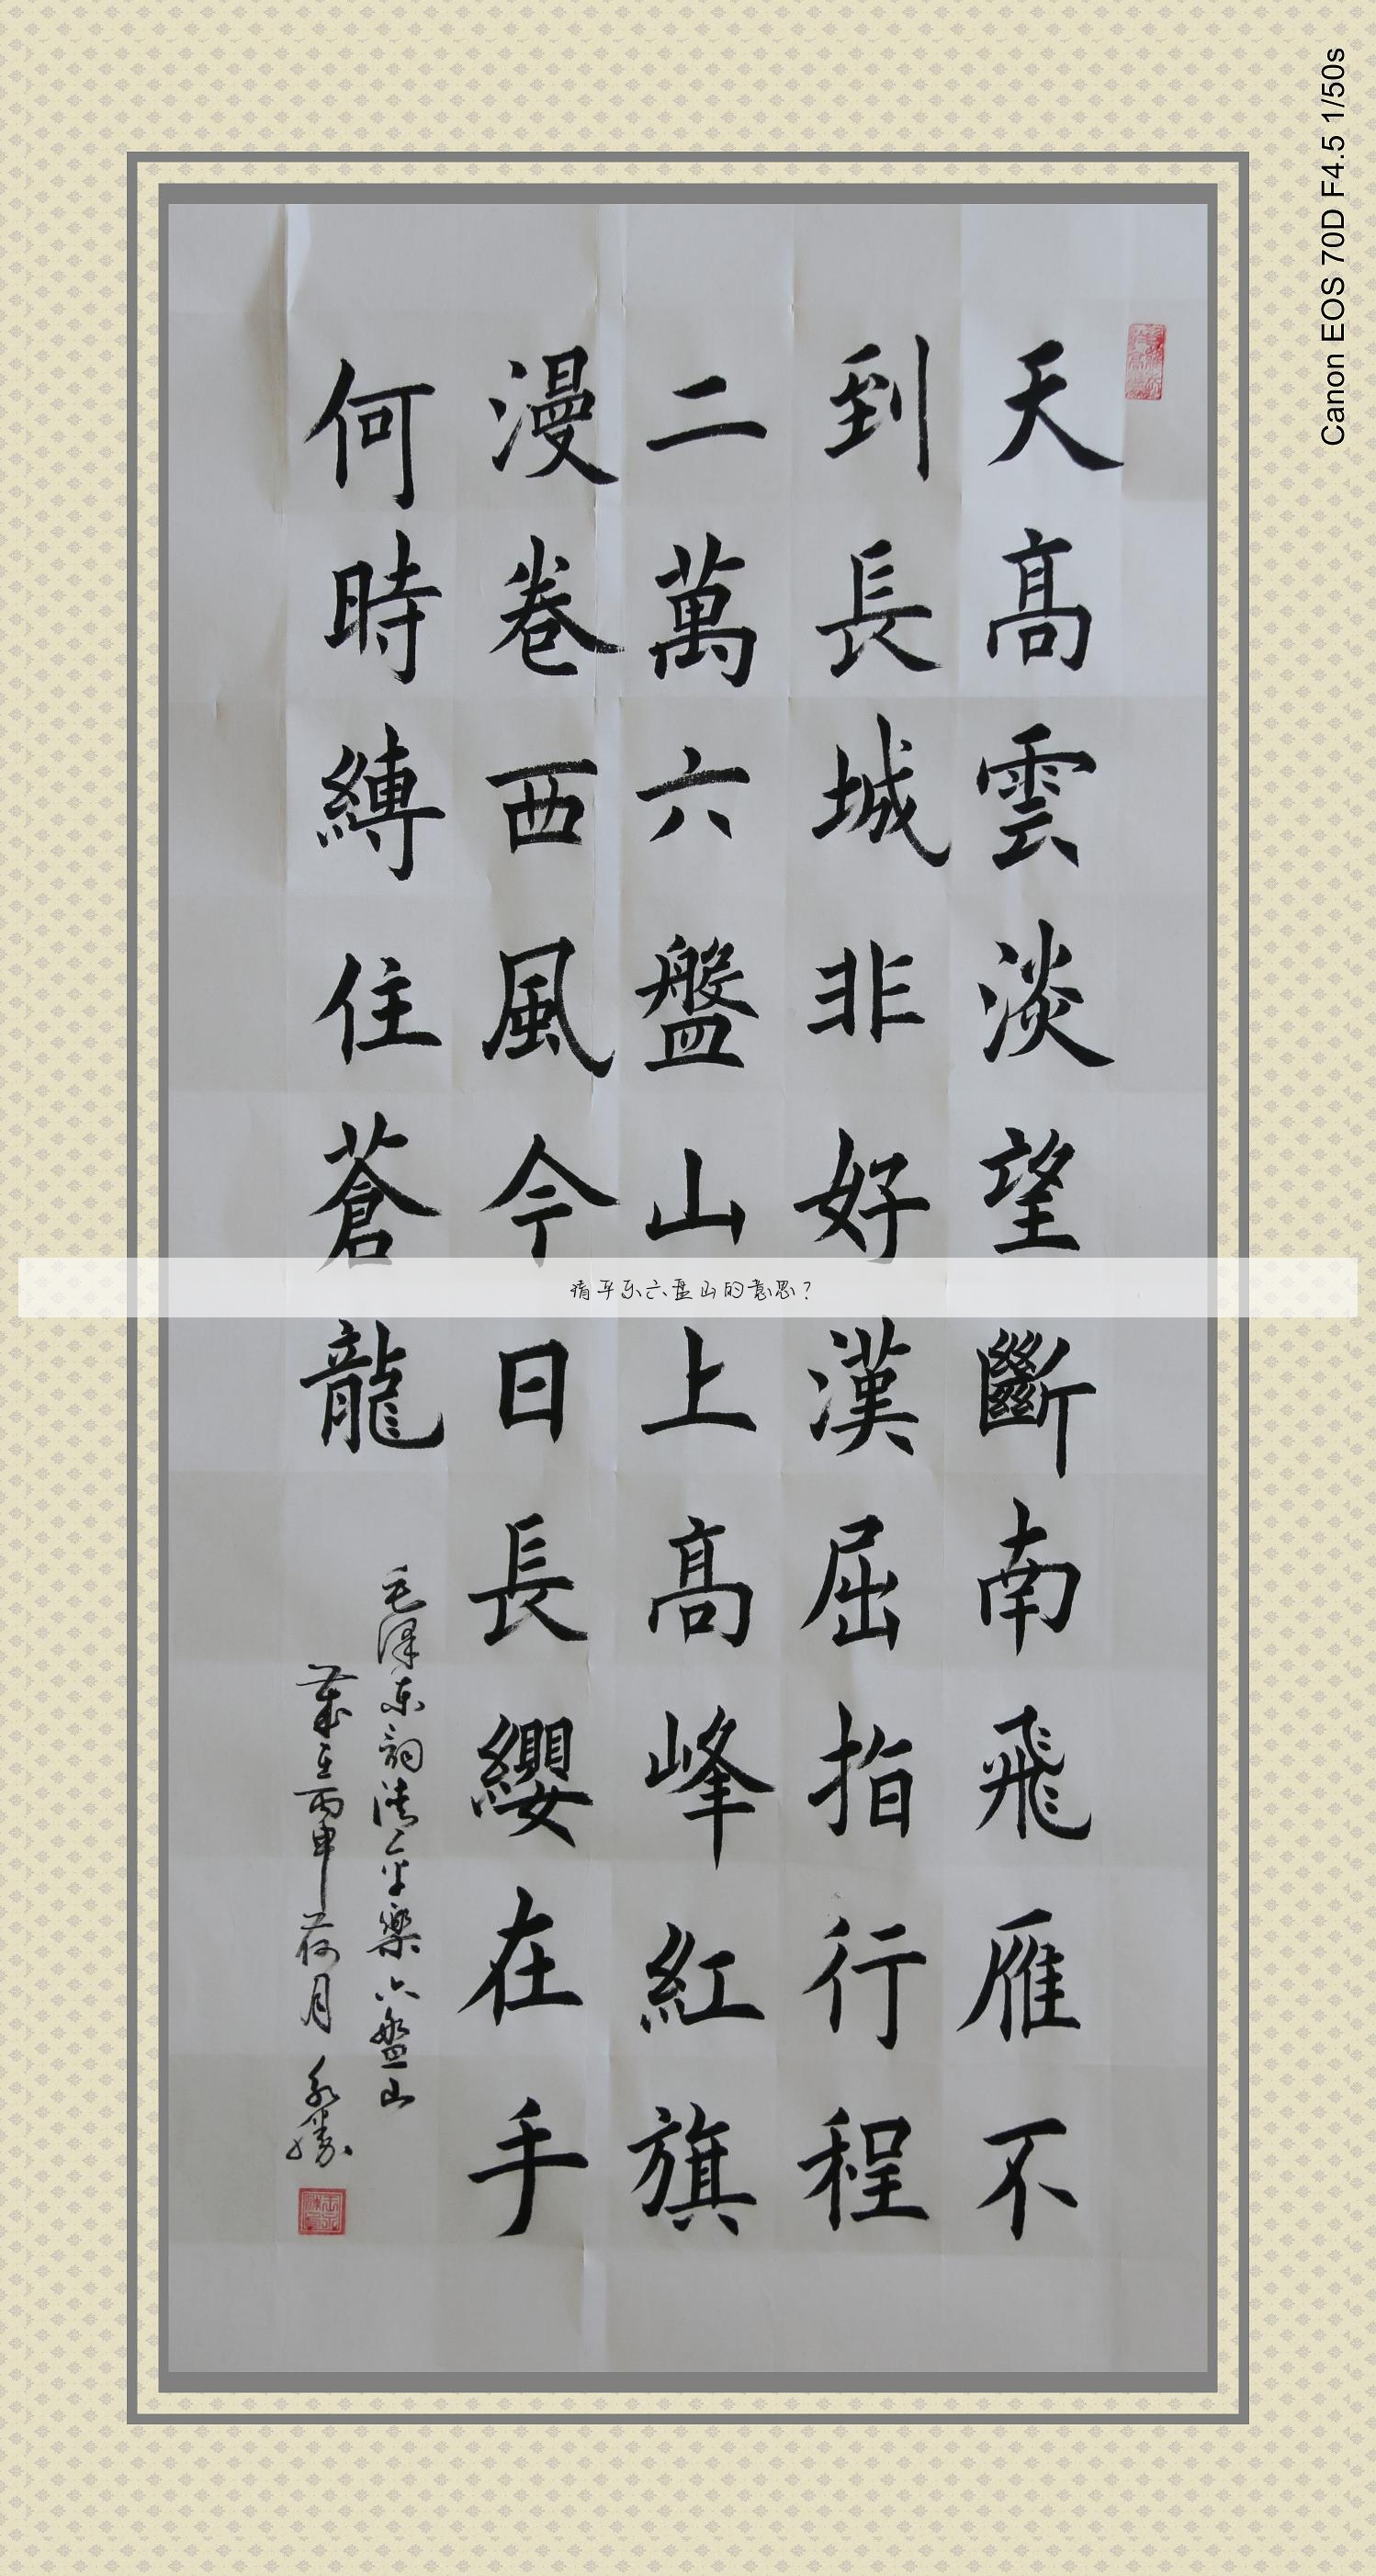 天高雲淡望斷南飛雁不
到長城非好漢屈指行程
二萬六盤山上高峰紅旗
漫卷西風今日長纓在手
何時縛住蒼龍
毛澤东詞清平樂六盤山
歲在丙申荷月 永勝
清平乐六盘山的意思？
Canon EOS 70D F4.5 1/50s